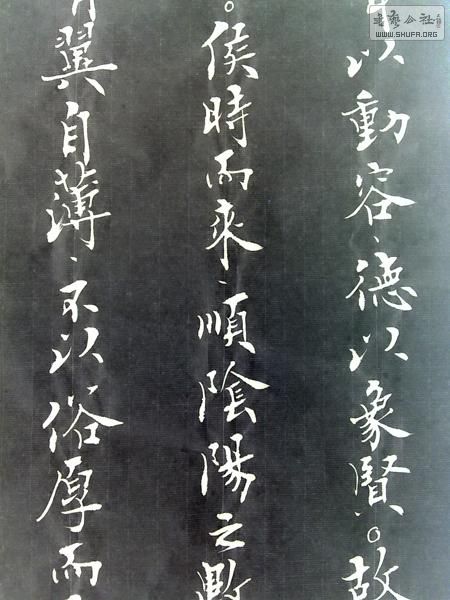 以動容、德以象賢。故
。侯時而來、順陰陽之數
翼自薄、不以俗厚而
書藝公社
WWW.SHUFA.ORG